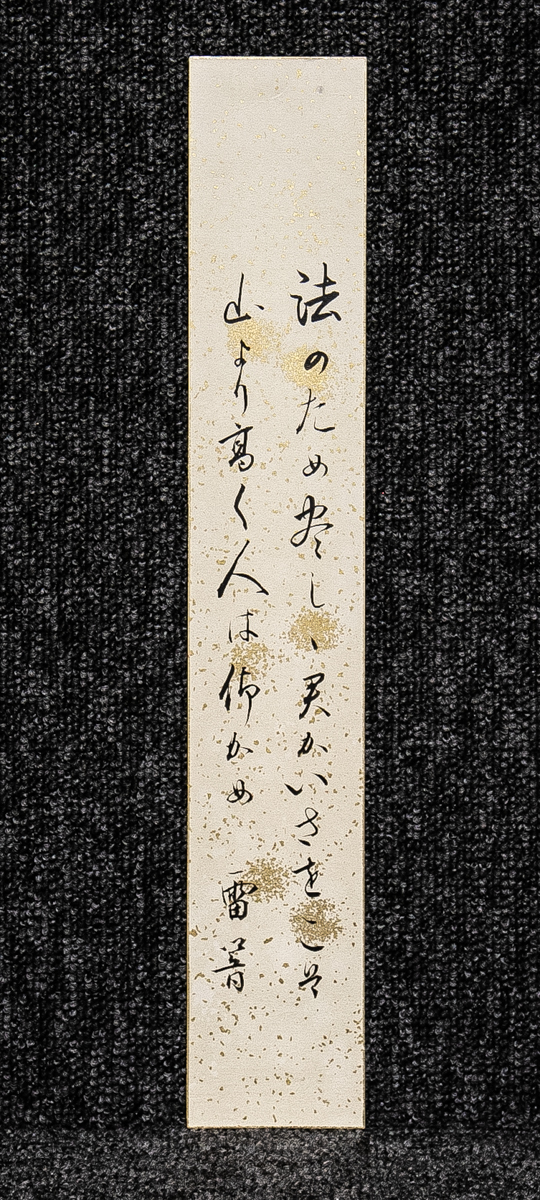 法のため尽しゝ君かいさをこそ
山より高く人は仰かめ 雷